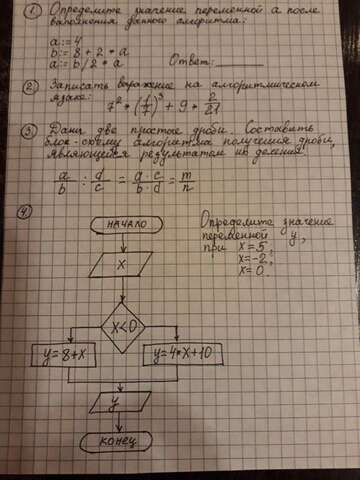 1 Определите значение переменной a после
выполнения данного алгоритма:
a:=4
b:= 8 + 2 * a
a:= b/2 * a
Ответ:
2 Записать выражение на алгоритмическом
языке:
7² * (1/7)³ + 9 * 2/21
3 Даны две простые дроби. Составить
блок-схему алгоритма получения дроби,
являющейся результатом их деления.
a/b : d/c = a·c/b·d = m/n
4
Определите значение
переменной y,
при x=5;
x=-2;
x=0.
НАЧАЛО
X
X<0
y=8+X
y=4*X+10
y
КОНЕЦ